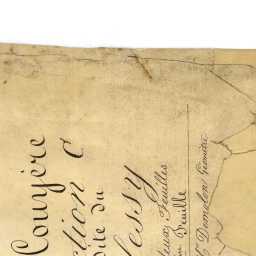 Couyère
ction C
dite du
essy
deux Feuilles
Feuille
Domelon Géomètre